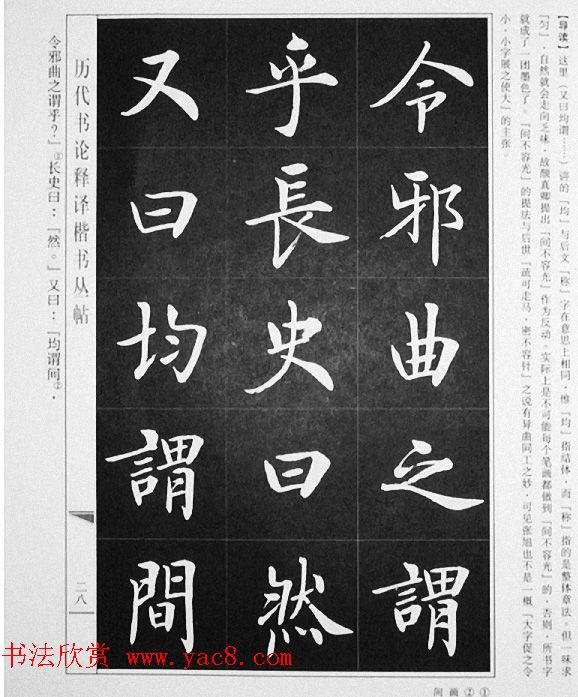 【导读】这里（又曰均谓……）讲的「均」与后文「称」字在意思上相同，惟「均」指结体，而「称」指的是整体章法。但一味求
「匀」，自然就会走向乏味，故颜真卿提出「间不容光」作为反动。实际上是不可能每个笔画都做到「间不容光」的，否则，所书字
就成了一团墨色了。「间不容光」的提法与后世「疏可走马，密不容针」之说有异曲同工之妙，可见张旭也不是一概「大字促之令
小，小字展之使大」的主张。
令邪曲之謂
乎長史曰然
又曰均謂間
历代书论释译楷书丛帖
二八
令邪曲之谓乎？」①长史曰：「然。」又曰：「均谓间②，
书法欣赏 www.yac8.com